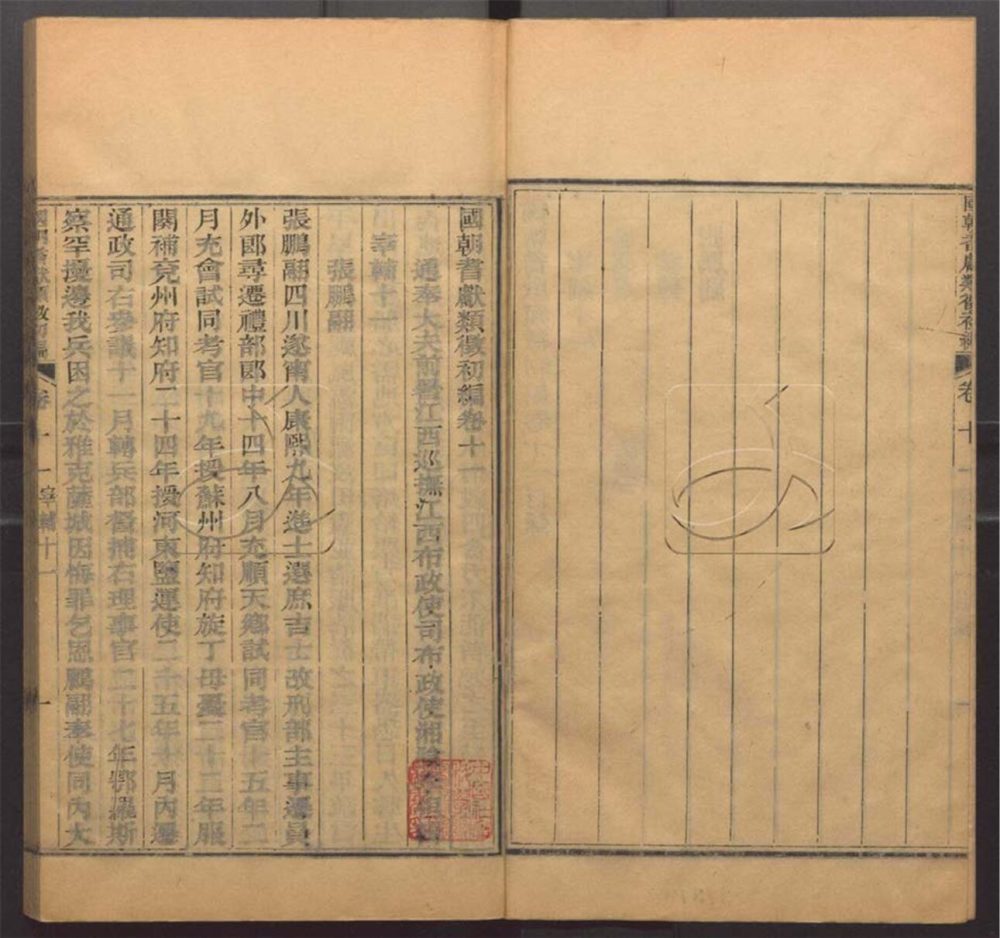 國朝耆獻類徵初編
卷十
國朝耆獻類徵初編卷十一
通奉大夫前署江西巡撫江西布政使司布政使湘陰李桓
宰輔十一
張鵬翮
張鵬翮四川遂甯人康熙九年進士選庶吉士改刑部主事遷員
外郎尋遷禮部郎中十四年八月充順天鄉試同考官十五年二
月充會試同考官十九年授蘇州府知府旋丁母憂二十二年服
闋補兗州府知府二十四年授河東鹽運使二十五年十月內遷
通政司右參議十一月轉兵部督捕右理事官二十七年鄂羅斯
察罕擾邊我兵困之於雅克薩城因悔罪乞恩鵬翮奉使同內大
國朝耆獻類徵初編
卷十一
宰輔十一
一